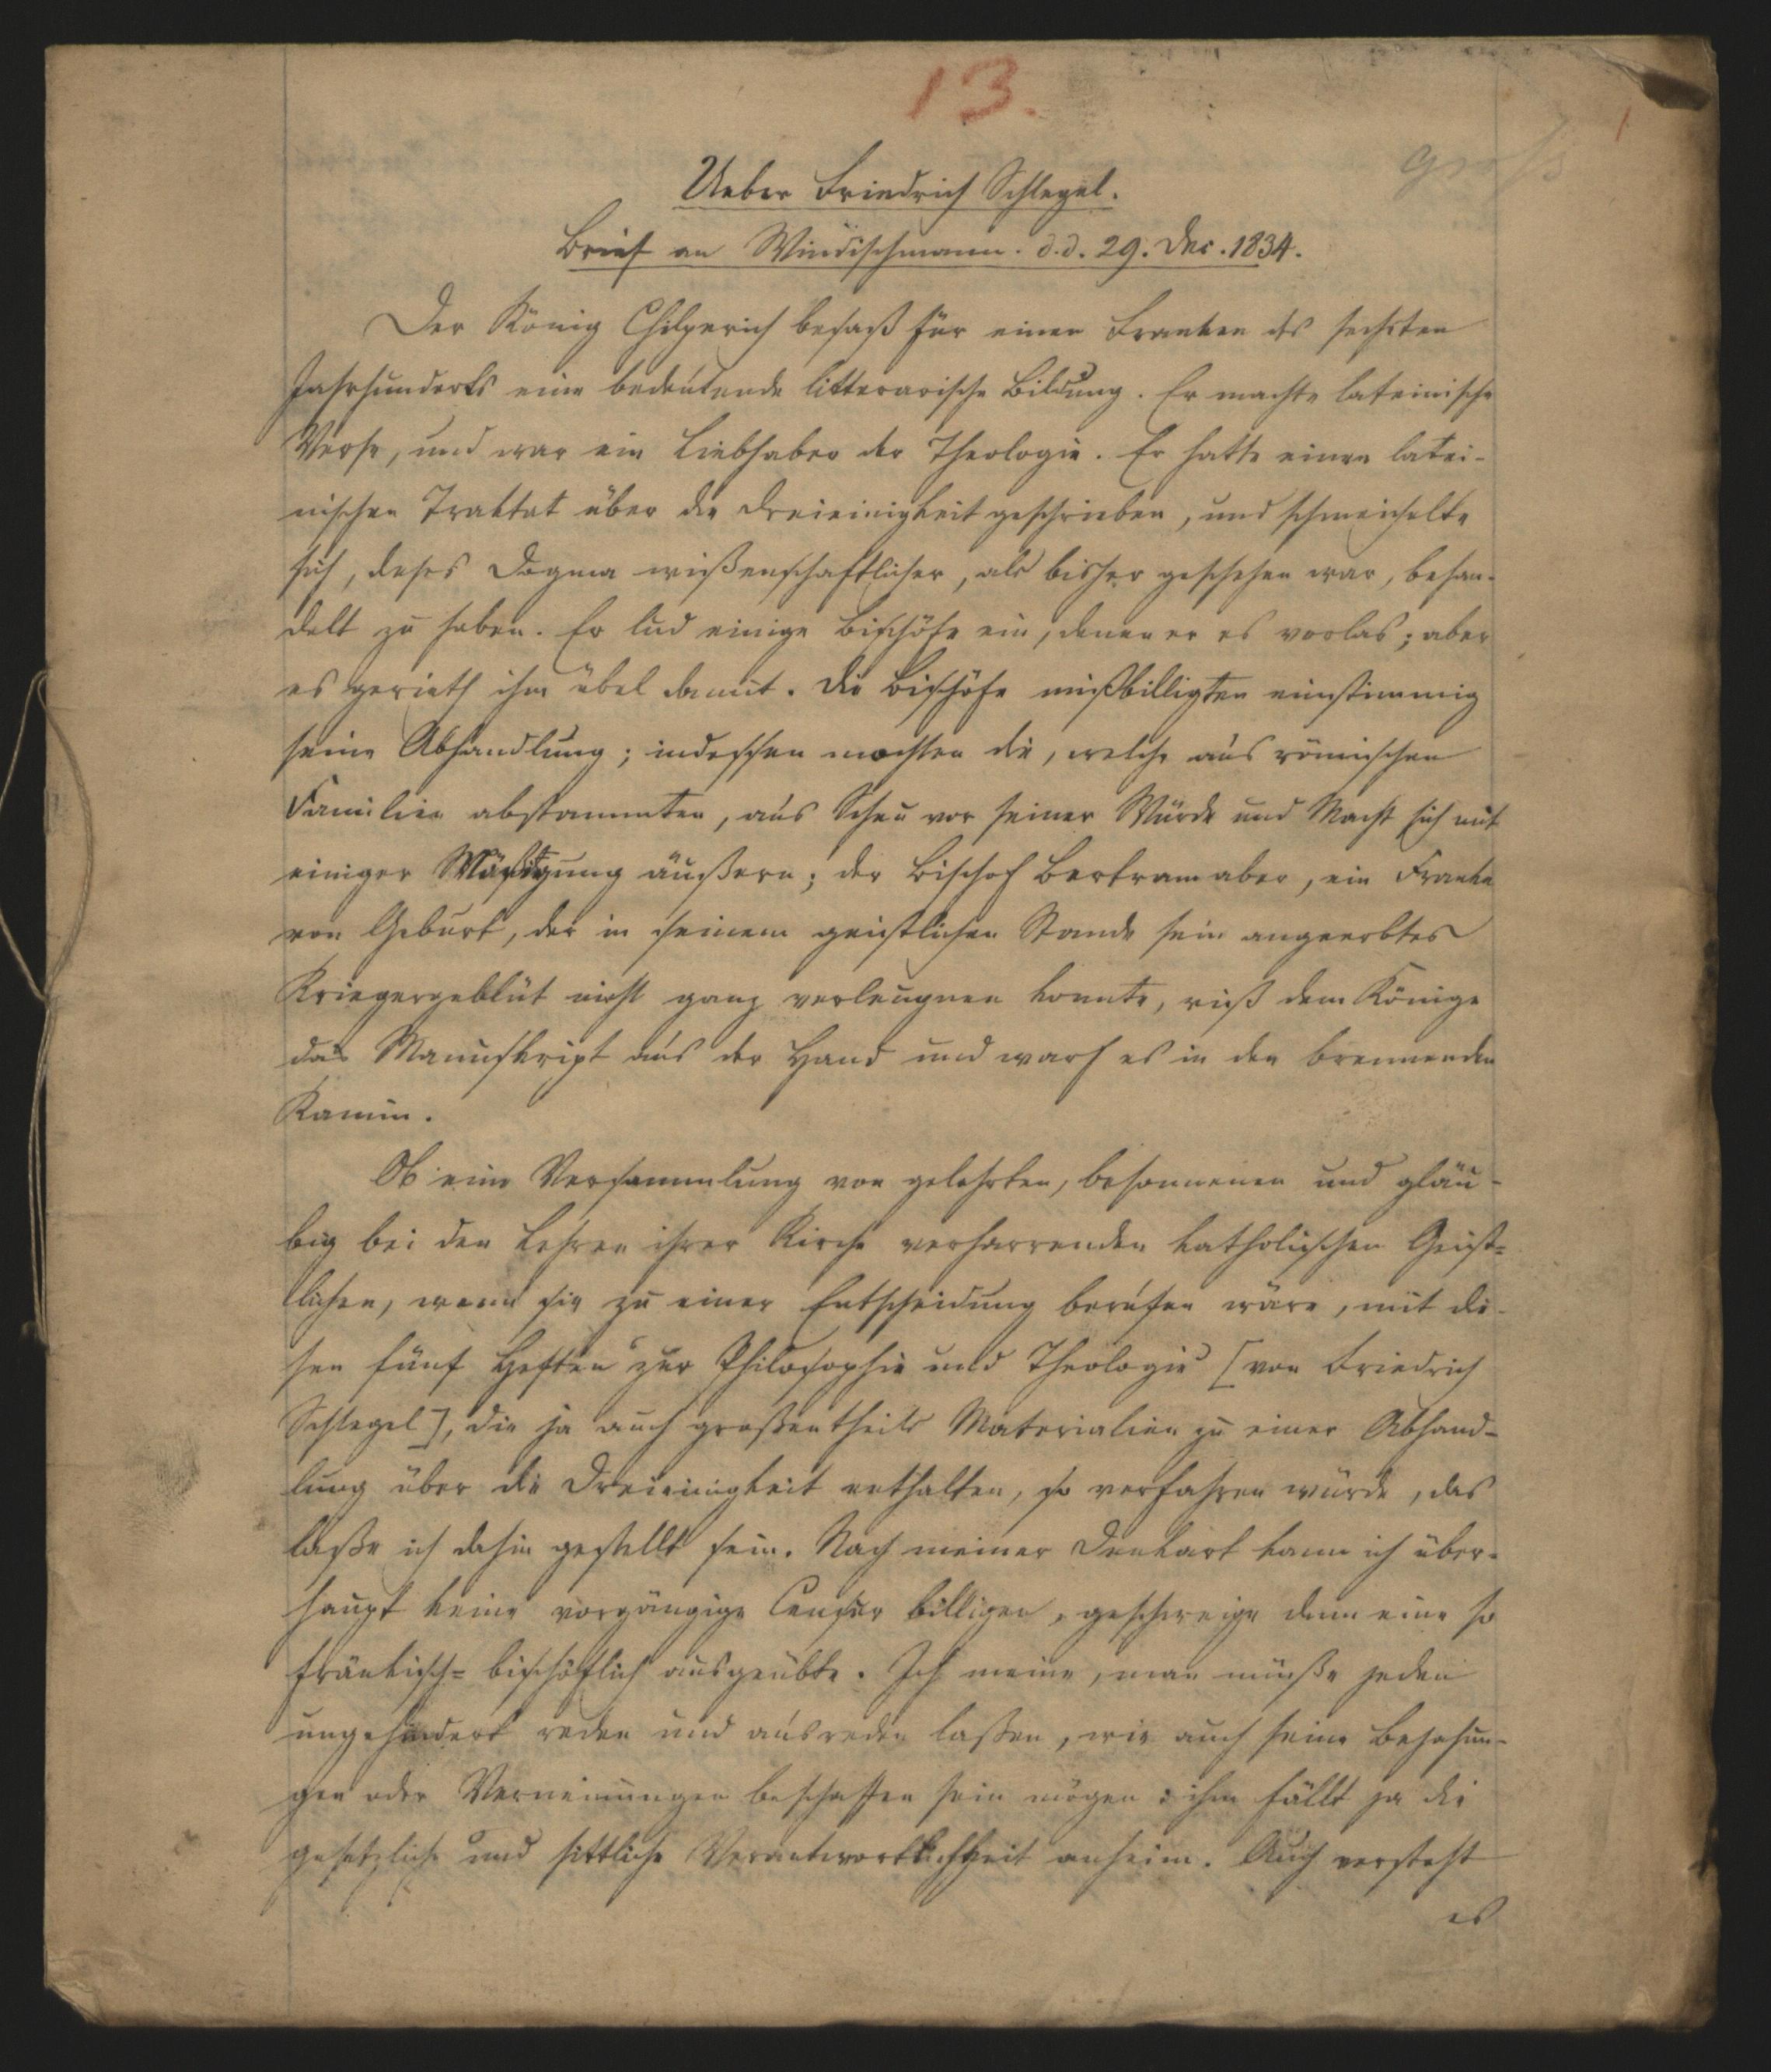 13.
1
groß
Ueber Friedrich Schlegel.
Brief an Windischmann. d.d. 29. Dec. 1834.
Der König Chilperich besaß für einen Franken des sechsten
Jahrhunderts eine bedeutende litterarische Bildung. Er machte lateinische
Verse, und war ein Liebhaber der Theologie. Er hatte einen latei-
nischen Traktat über die Dreieinigkeit geschrieben, und schmeichelte
sich, dieses Dogma wißenschaftlicher, als bisher geschehen war, behan-
delt zu haben. Er lud einige Bischöfe ein, denen er es vorlas; aber
es gerieth ihm übel damit. Die Bischöfe mißbilligten einstimmig
seine Abhandlung; indessen mochten die, welche aus römischen
Familien abstammten, aus Scheu vor seiner Würde und Macht sich mit
einiger Mäßigung äußern; der Bischof Bertram aber, ein Franke
von Geburt, der in seinem geistlichen Stande sein angeerbtes
Kriegergeblüt nicht ganz verleugnen konnte, riß dem Könige
das Manuskript aus der Hand und warf es in den brennenden
Kamin.
Ob eine Versammlung von gelehrten, besonnenen und gläu-
big bei den Lehren ihrer Kirche verharrenden katholischen Geist-
lichen, wenn sie zu einer Entscheidung berufen wäre, mit die-
sen fünf Heften "zur Philosophie und Theologie" [von Friedrich
Schlegel], die ja auch großentheils Materialien zu einer Abhand-
lung über die Dreieinigkeit enthalten, so verfahren würde, das
laße ich dahin gestellt sein. Nach meiner Denkart kann ich über-
haupt keine vorgängige Censur billigen, geschweige denn eine so
fränkisch-bischöflich ausgeübte. Ich meine, man müße jeden
ungehindert reden und ausreden laßen, wie auch seine Bejahun-
gen oder Verneinungen beschaffen sein mögen: ihm fällt ja die
gesetzliche und sittliche Verantwortlichkeit anheim. Auch versteht
es